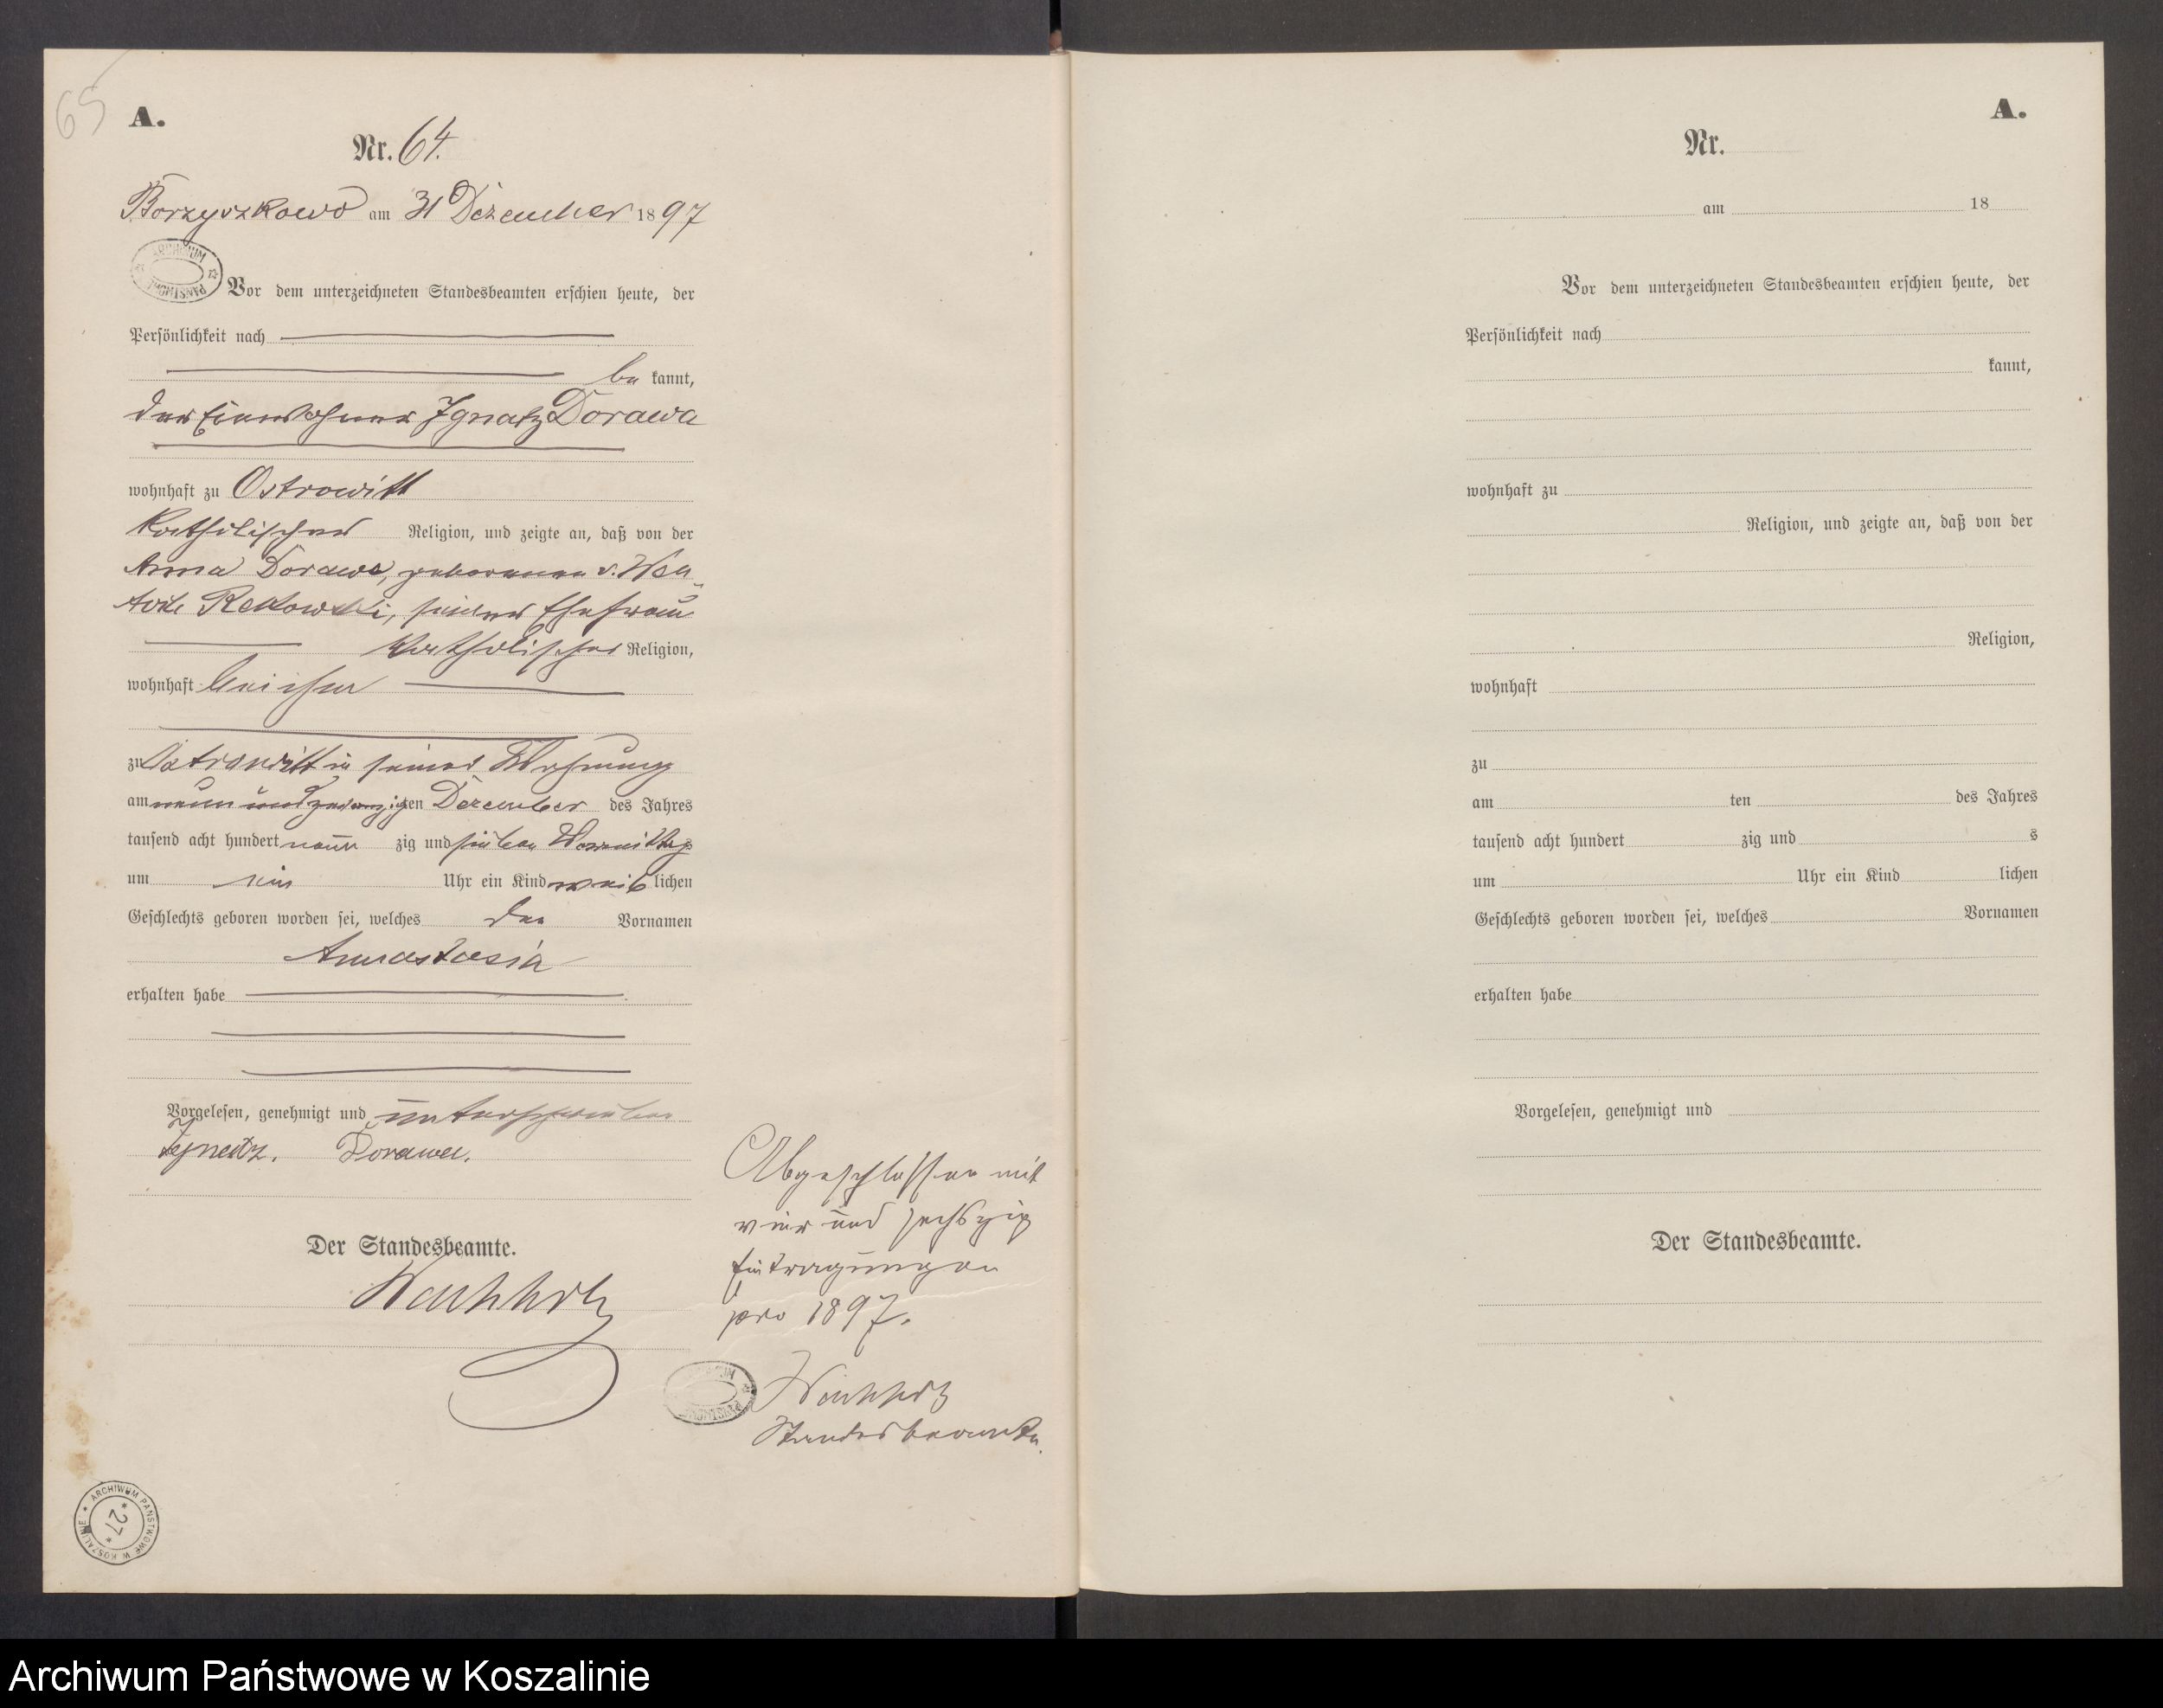 65
A.
Nr. 64.
Borzyszkowo am 31 Dezember 1897
Vor dem unterzeichneten Standesbeamten erschien heute, der
Persönlichkeit nach
be kannt,
der Einwohner Ignatz Dorawa
wohnhaft zu Ostrowitt
katholischer Religion, und zeigte an, daß von der
Anna Dorawa, geborenen v.
Rekowski, seiner Ehefrau
katholischer Religion,
wohnhaft bei ihm
zu Ostrowitt in seiner Wohnung
am neun und zwanzigsten Dezember des Jahres
tausend acht hundert neun zig und sieben Vormittags
um ein Uhr ein Kind weiblichen
Geschlechts geboren worden sei, welches den Vornamen
Annastasia
erhalten habe
Vorgelesen, genehmigt und unterschrieben
Ignatz. Dorawa.
Der Standesbeamte.
Abgeschlossen mit
vier und sechszig
Eintragungen
pro 1897.
Standesbeamte.
ARCHIWUM PAŃSTWOWE W KOSZALINIE
* 27 *
A.
Nr.
am 18
Vor dem unterzeichneten Standesbeamten erschien heute, der
Persönlichkeit nach
kannt,
wohnhaft zu
Religion, und zeigte an, daß von der
Religion,
wohnhaft
zu
am ten des Jahres
tausend acht hundert zig und s
um Uhr ein Kind lichen
Geschlechts geboren worden sei, welches Vornamen
erhalten habe
Vorgelesen, genehmigt und
Der Standesbeamte.
Archiwum Państwowe w Koszalinie